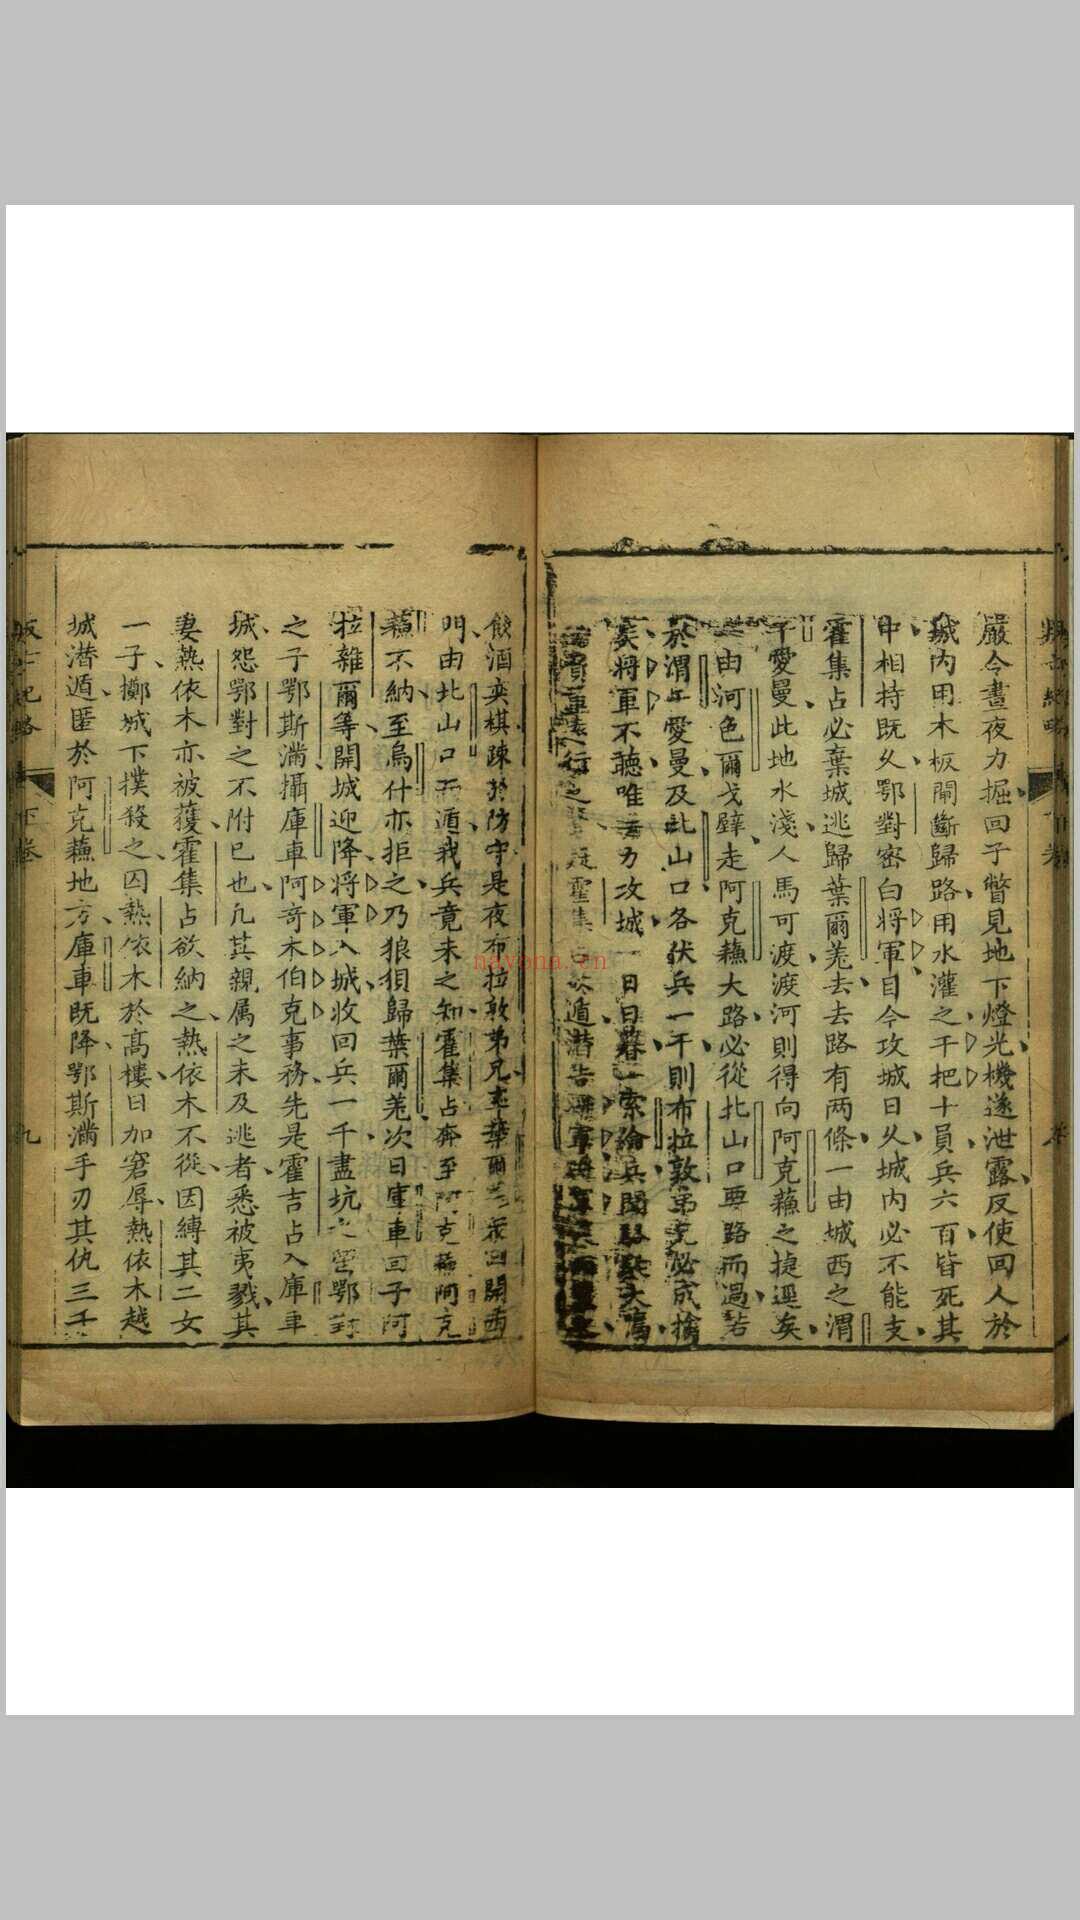 嚴令晝夜力掘回子瞥見地下燈光機遂泄露反使回人於
城內用木板閘斷歸路用水灌之千把十員兵六百皆死其
中相持既久鄂對密白將軍目今攻城日久城內必不能支
霍集占必棄城逃歸葉爾羌去去路有兩條一由城西之渭
干愛曼此地水淺人馬可渡渡河則得向阿克蘓之捷逕矣
一由河色爾戈壁走阿克蘓大路必從北山口要路而過若
於渭干愛曼及北山口各伏兵一千則布拉敦弟兄必成擒
矣將軍不聽唯 力攻城一日日暮一索倫兵聞 大
行之 霍集 遁潛告
飲酒奕棋疎於防守是夜布拉敦弟兄 葉爾 開西
門由北山口而遁我兵竟未之知霍集占奔至阿克蘓阿克
蘓不納至烏什亦拒之乃狼狽歸葉爾羌次日庫車回子阿
拉雜爾等開城迎降將軍入城收回兵一千盡坑之 鄂對
之子鄂斯滿攝庫車阿奇木伯克事務先是霍吉占入庫車
城怨鄂對之不附已也凢其親属之未及逃者悉被夷戮其
妻熱依木亦被獲霍集占欲納之熱依木不從因縛其二女
一子擲城下撲殺之囚熱依木於高樓日加窘辱熱依木越
城潜遁匿於阿克蘓地方庫車既降鄂斯滿手刃其仇三千
下卷
九
nayona.cn